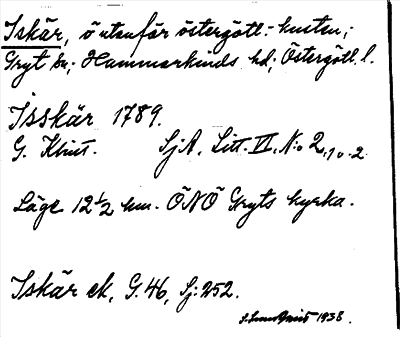 Iskär, ö utanför östergötl.-kusten;
Gryt sn; Hammarkinds hd; Östergötl. l.
Isskär 1789.
G. Klint. Sj.A. Litt. VI. N:o 2, 1 o. 2.
Läge 12 1/2 km. ÖNÖ Gryts kyrka.
Iskär ek, G.46, Sj:252.
S. Lundqvist 1938.